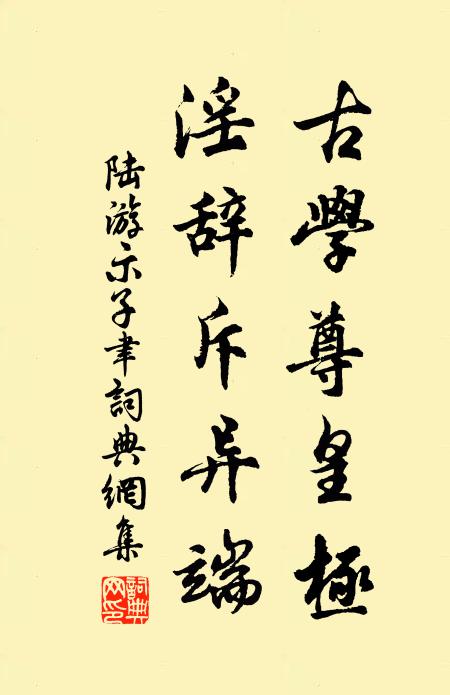 古學尊皇極
淫辞斥异端
陆游示子聿詞典網集
詞典網印